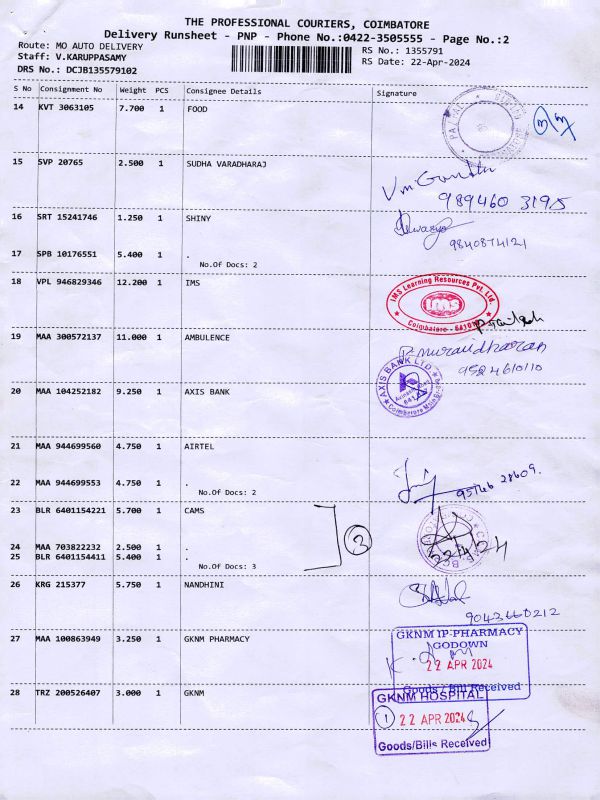 THE PROFESSIONAL COURIERS, COIMBATORE
Delivery Runsheet - PNP - Phone No.:0422-3505555 - Page No.:2
Route: MO AUTO DELIVERY
RS No.: 1355791
Staff: V.KARUPPASAMY
RS Date: 22-Apr-2024
DRS No.: DCJB135579102
S No Consignment No Weight PCS Consignee Details Signature
14 KVT 3063105 7.700 1 FOOD
15 SVP 20765 2.500 1 SUDHA VARADHARAJ
989460 3195
16 SRT 15241746 1.250 1 SHINY
9840874121
17 SPB 10176551 5.400 1 .
No.Of Docs: 2
18 VPL 946829346 12.200 1 IMS
IMS Learning Resources Pvt. Ltd.
IMS
Coimbatore
19 MAA 300572137 11.000 1 AMBULENCE
P. muralidharan
9524610110
20 MAA 104252182 9.250 1 AXIS BANK
AXIS BANK LTD
21 MAA 944699560 4.750 1 AIRTEL
22 MAA 944699553 4.750 1 .
95146 28609.
No.Of Docs: 2
23 BLR 6401154221 5.700 1 CAMS
24 MAA 703822232 2.500 1 .
25 BLR 6401154411 5.400 1 .
No.Of Docs: 3
26 KRG 215377 5.750 1 NANDHINI
9043660212
27 MAA 100863949 3.250 1 GKNM PHARMACY
GKNM IP-PHARMACY
GODOWN
22 APR 2024
Goods / Bill Received
28 TRZ 200526407 3.000 1 GKNM
GKNM HOSPITAL
1 22 APR 2024
Goods/Bills Received